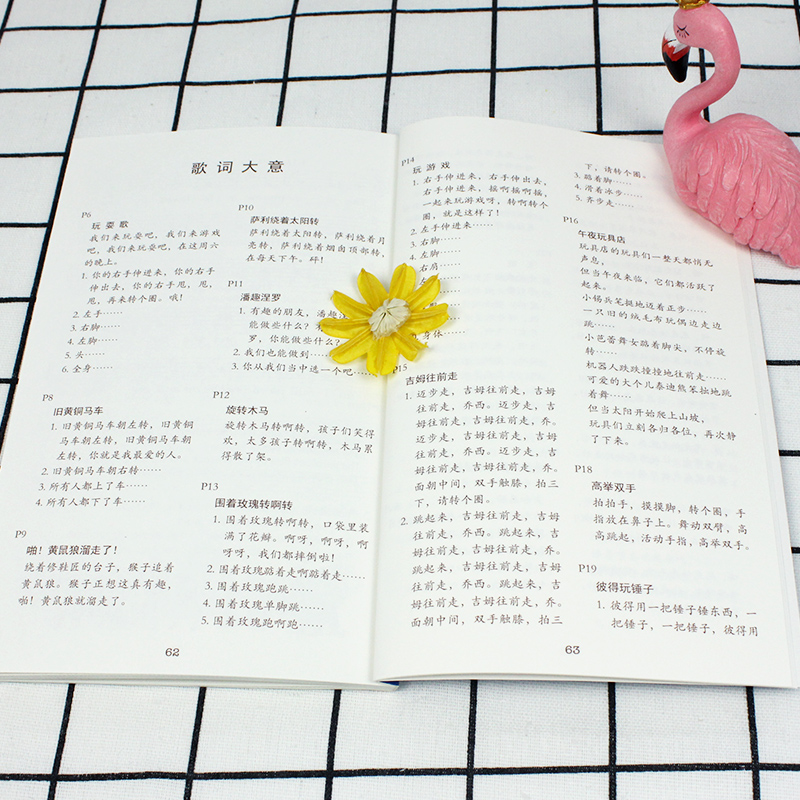 歌词大意
P6
玩耍歌
我们来玩耍吧，我们来游戏
吧，我们来玩耍吧，在这周六
的晚上。
1. 你的右手伸进来，你的右手
伸出去，你的右手甩，甩，
甩，再来转个圈。哦！
2. 左手……
3. 右脚……
4. 左脚……
5. 头……
6. 全身……
P8
旧黄铜马车
1. 旧黄铜马车朝左转，旧黄铜
马车朝左转，旧黄铜马车朝
左转，你就是我最爱的人。
2. 旧黄铜马车朝右转……
3. 所有人都上了车……
4. 所有人都下了车……
P9
啪！黄鼠狼溜走了！
绕着修鞋匠的台子，猴子追着
黄鼠狼。猴子正想这真有趣，
啪！黄鼠狼就溜走了。
P10
萨利绕着太阳转
萨利绕着太阳转，萨利绕着月
亮转，萨利绕着烟囱顶部转，
在每天下午。砰！
P11
潘趣涅罗
1. 有趣的朋友，潘趣
能做些什么？
罗，你能做些什么
2. 我们也能做到……
3. 你从我们当中选一个吧……
P12
旋转木马
旋转木马转啊转，孩子们笑得
欢，太多孩子转啊转，木马累
得散了架。
P13
围着玫瑰转啊转
1. 围着玫瑰转啊转，口袋里装
满了花瓣。啊呀，啊呀，啊
呀呀，我们都摔倒啦！
2. 围着玫瑰踮着走啊踮着走……
3. 围着玫瑰跑跳……
4. 围着玫瑰单脚跳……
5. 围着玫瑰跑啊跑……
62
P14
玩游戏
1. 右手伸进来，右手伸出去，
右手伸进来，摇啊摇啊摇，
一起来玩游戏呀，转啊转个
圈，就是这样了！
2. 左手伸进来……
3. 右脚……
4. 左脚……
5. 右肩……
身体……
P15
吉姆往前走
1. 迈步走，吉姆往前走，吉姆
往前走，乔西。迈步走，吉
姆往前走，吉姆往前走，乔。
迈步走，吉姆往前走，吉姆
往前走，乔西。迈步走，吉
姆往前走，吉姆往前走，乔。
面朝中间，双手触膝，拍三
下，请转个圈。
2. 跳起来，吉姆往前走，吉姆
往前走，乔西。跳起来，吉
姆往前走，吉姆往前走，乔。
跳起来，吉姆往前走，吉姆
往前走，乔西。跳起来，吉
姆往前走，吉姆往前走，乔。
面朝中间，双手触膝，拍三
下，请转个圈。
3. 踮着脚……
4. 滑着冰步……
5. 齐步走……
P16
午夜玩具店
玩具店的玩具们一整天都悄无
声息，
但当午夜来临，它们都活跃了
起来。
小锡兵笔挺地迈着正步……
一只旧的绒毛布玩偶边走边
跳……
小芭蕾舞女踮着脚尖，不停旋
转……
机器人跌跌撞撞地往前走……
可爱的大个儿泰迪熊笨拙地跳
着舞……
但当太阳开始爬上山坡，
玩具们立刻各归各位，再次静
了下来。
P18
高举双手
拍拍手，摸摸脚，转个圈，手
指放在鼻子上。舞动双臂，高
高跳起，活动手指，高举双手。
P19
彼得玩锤子
1. 彼得用一把锤子锤东西，一
把锤子，一把锤子，彼得用
63